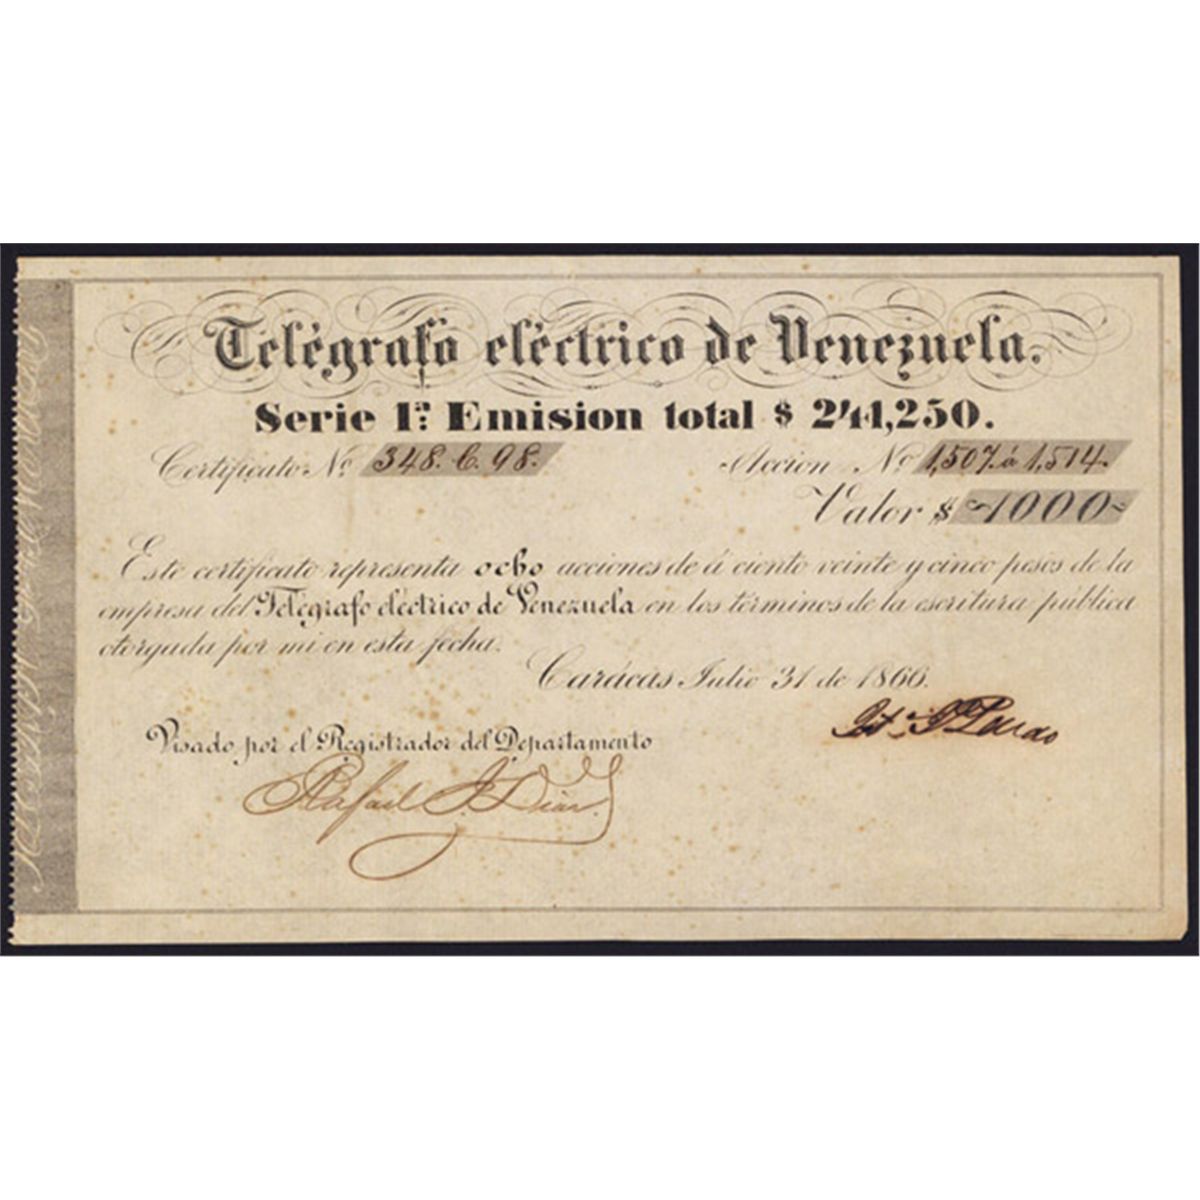 Telégrafo eléctrico de Venezuela.
Serie 1ª Emision total $ 244,250.
Certificato Nº 348.6.98.
Accion Nº 1,507 á 1,514.
Valor $ 1000
Este certificato representa ocho acciones de á ciento veinte y cinco pesos de la
empresa del Telégrafo eléctrico de Venezuela en los términos de la escritura pública
otorgada por mi en esta fecha.
Carácas Julio 31 de 1866.
Visado por el Registrador del Departamento
Rafael J. Dias